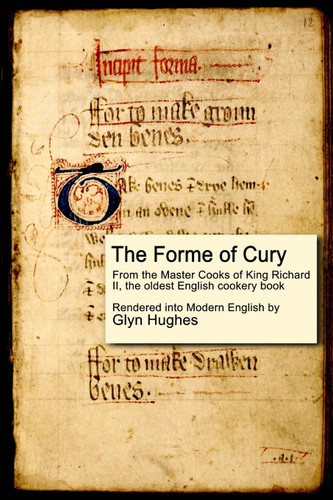 12
Incipit forma.
ffor to make groun
den benes.
Take benes & drye hem
in an ovene & hulle he
We
The Forme of Cury
From the Master Cooks of King Richard
II, the oldest English cookery book
Rendered into Modern English by
Glyn Hughes
ffor to make drawen
benes.